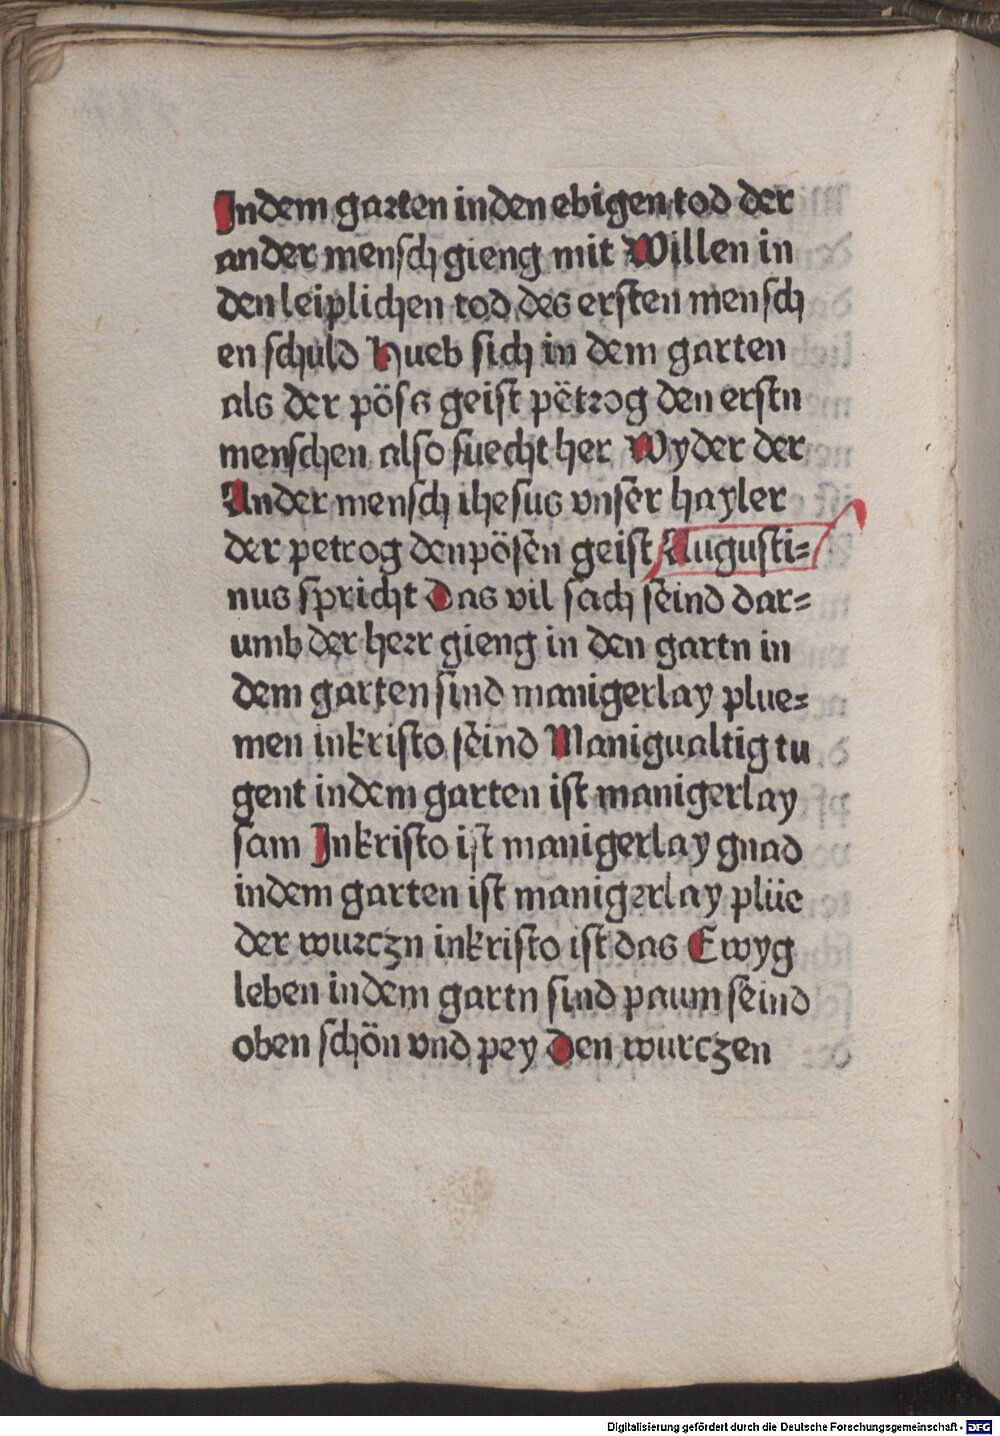 In dem garten in den ebigen tod der
ander mensch gieng mit Willen in
den leiplichen tod des ersten mensch
en schuld Hueb sich in dem garten
als der pöss geist pëtrog den erstn
menschen also suecht her Wyder der
Ander mensch ihesus vnser hayler
der petrog den pösen geist Augusti=
nus spricht Das vil sach seind dar=
umb der herr gieng in den gartn in
dem garten sind manigerlay plue=
men in kristo seind Manigualtig tu
gent in dem garten ist manigerlay
sam In kristo ist manigerlay gnad
in dem garten ist manigerlay plüe
der wurczn in kristo ist das Ewyg
leben in dem gartn sind paum seind
oben schön vnd pey den wurczen
Digitalisierung gefördert durch die Deutsche Forschungsgemeinschaft - DFG